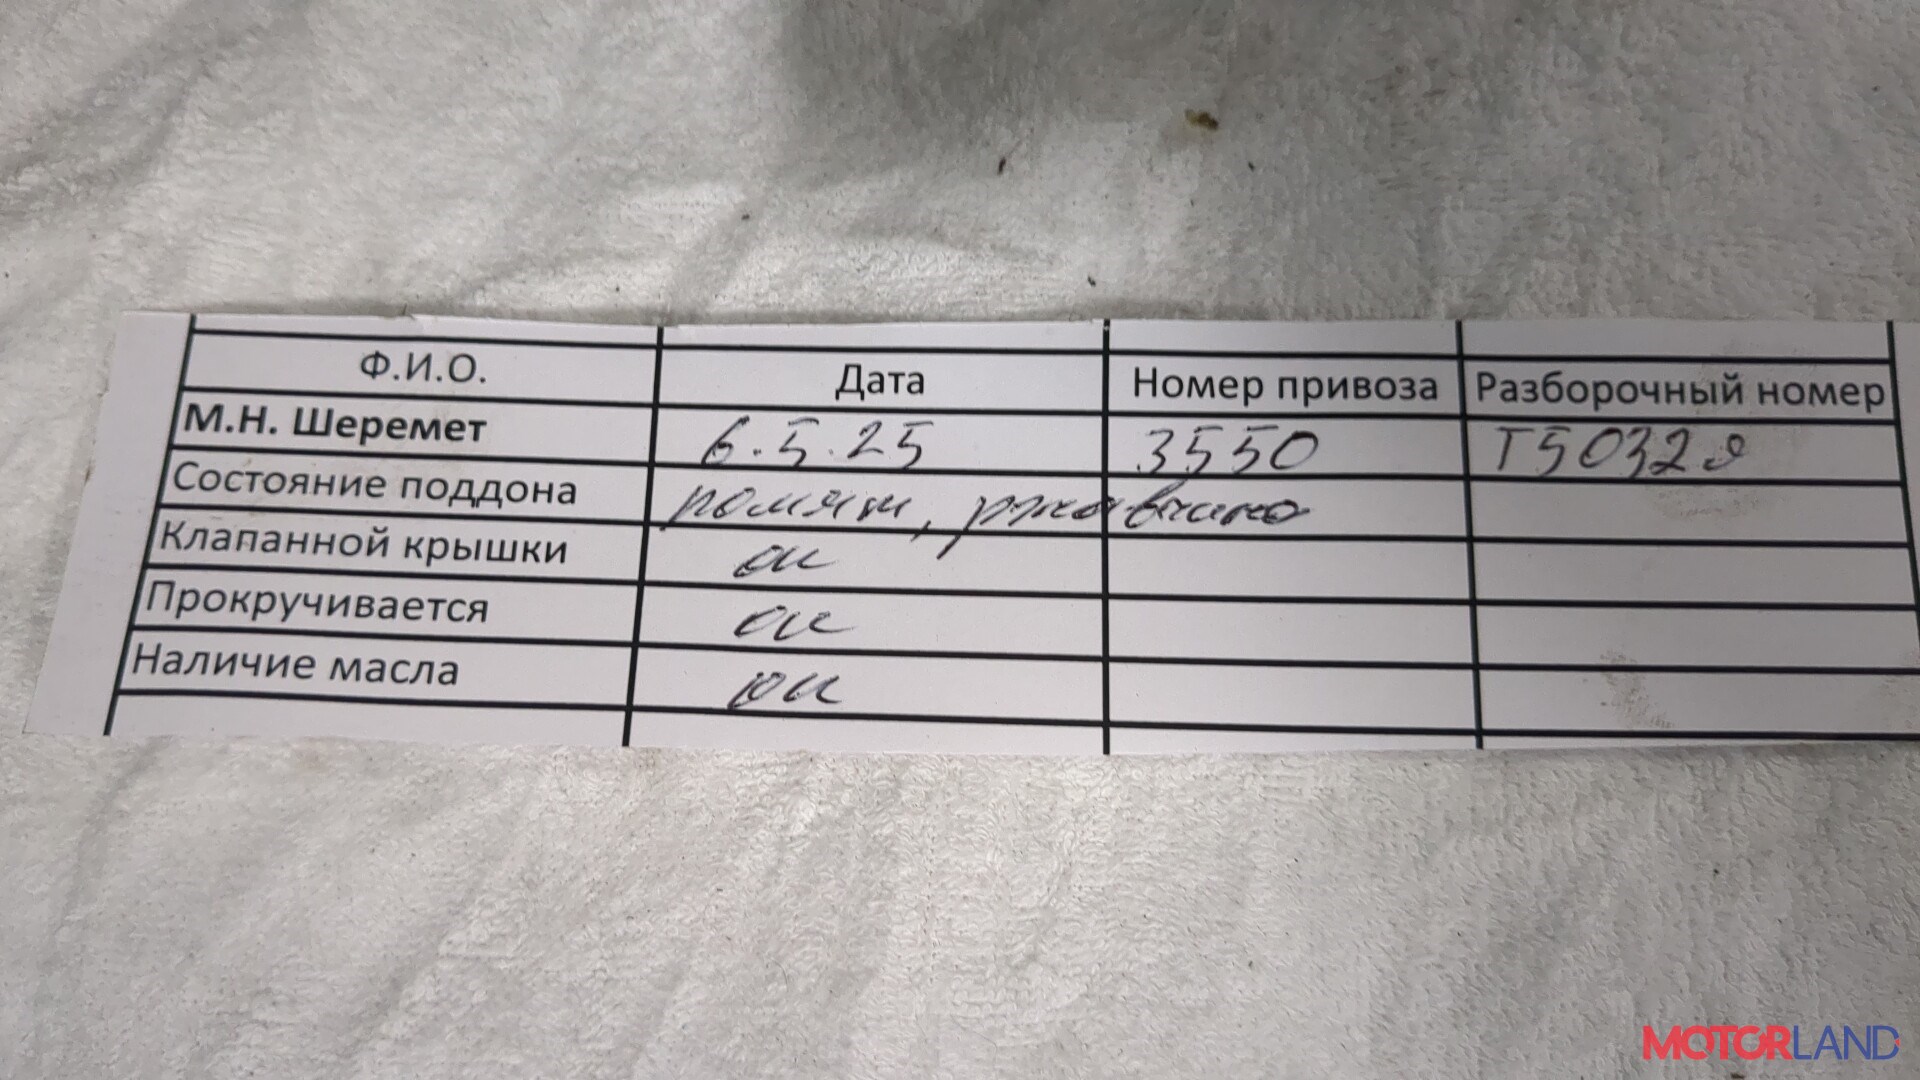 Ф.И.О. Дата Номер привоза Разборочный номер
М.Н. Шеремет 6.5.25 3550 Т5032
Состояние поддона помят, ржавчина
Клапанной крышки ок
Прокручивается ок
Наличие масла ок
MOTORLAND